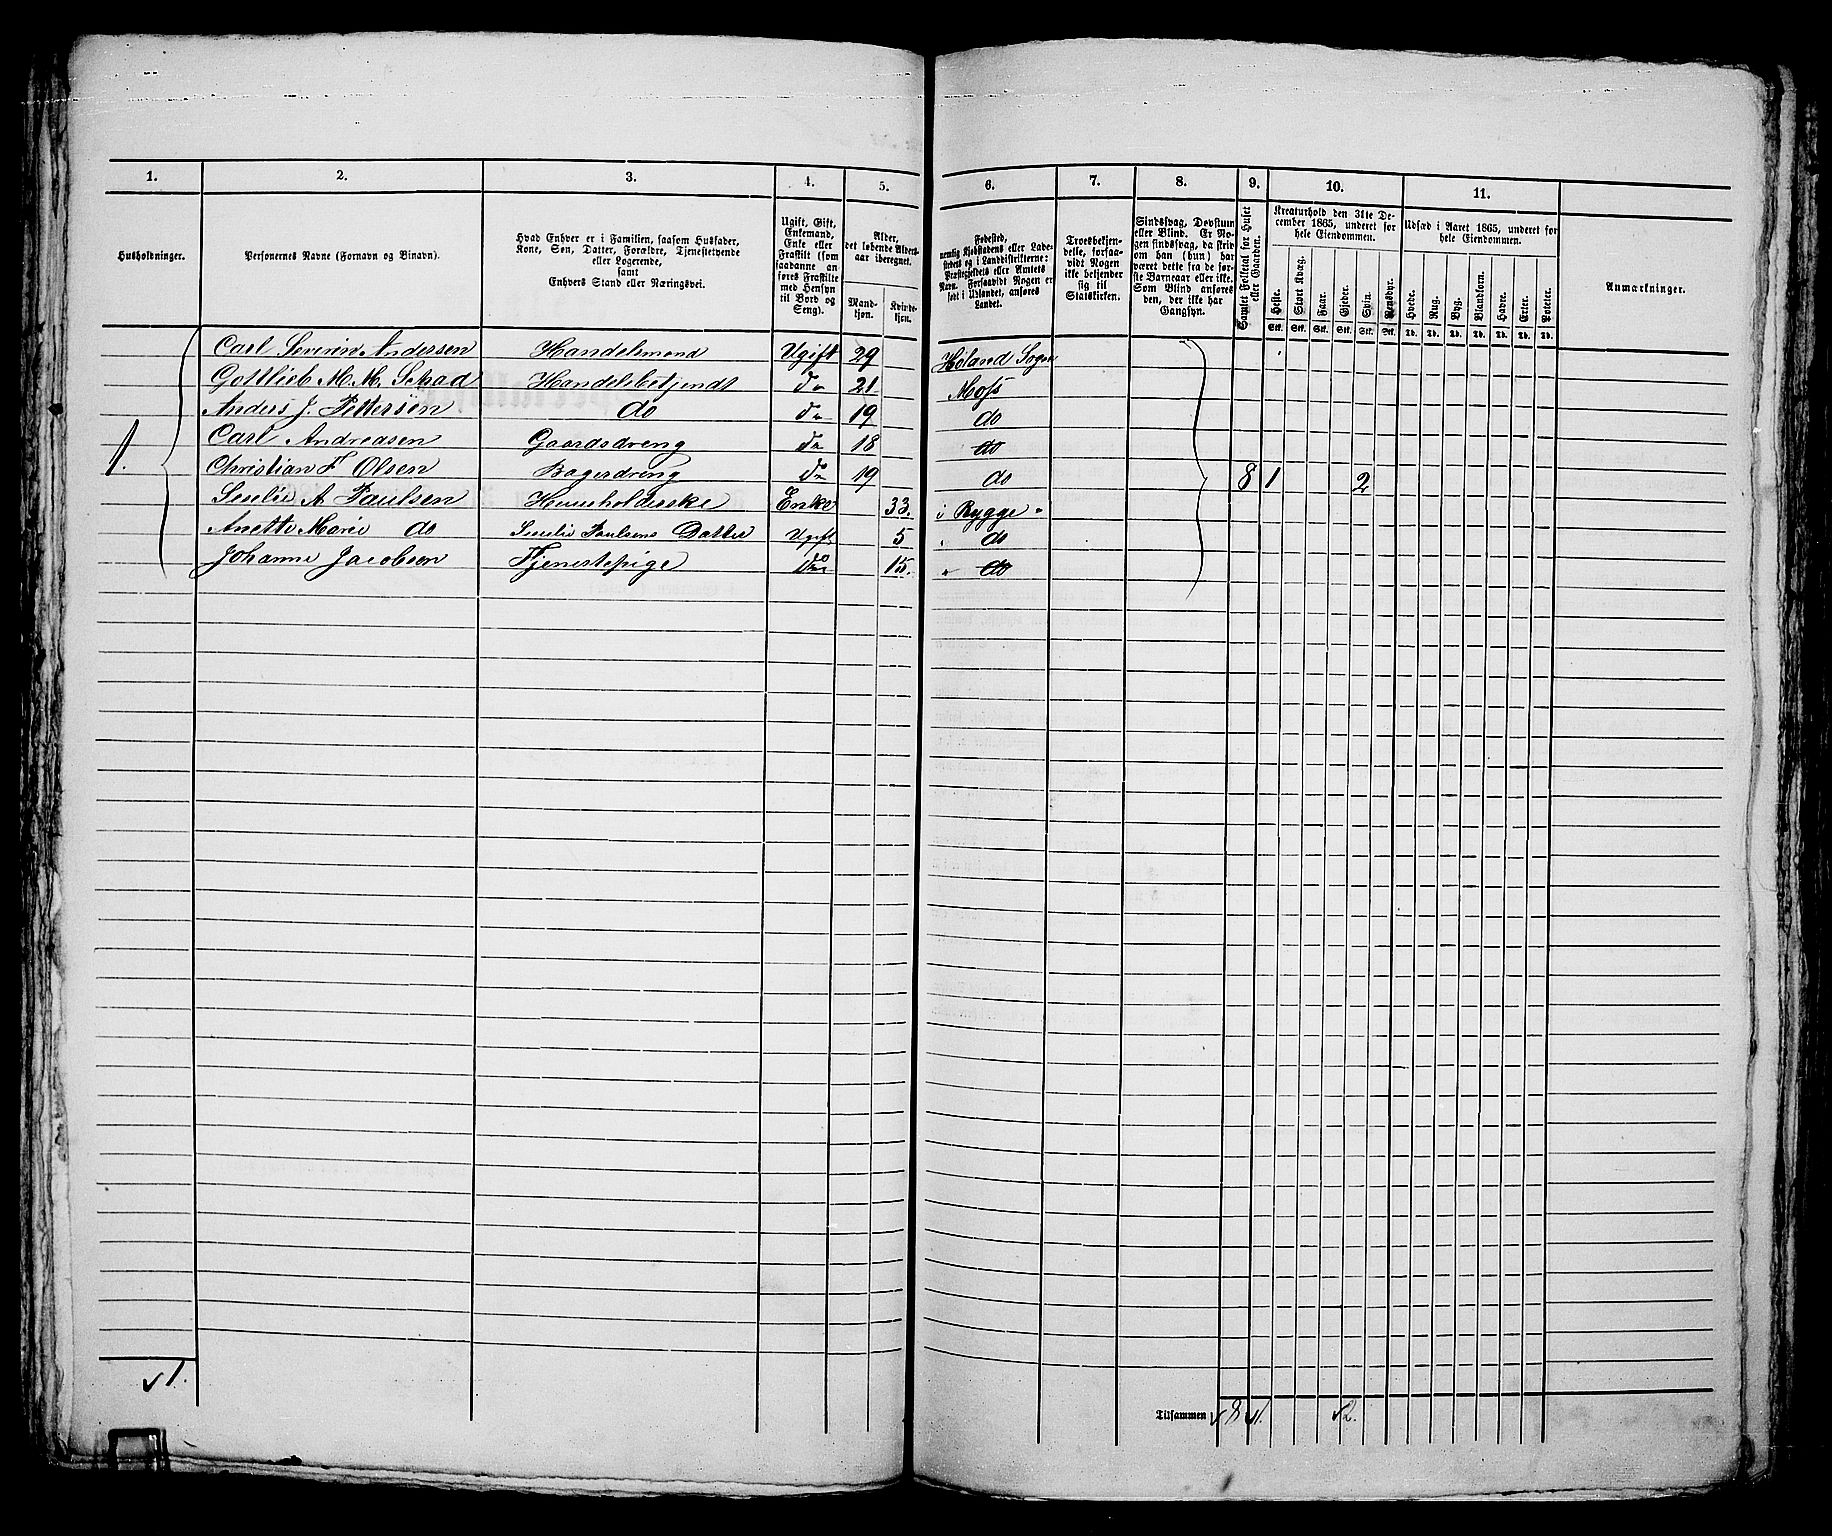 1. 2. 3. 4. 5. 6. 7. 8. 9. 10. 11.
Husholdninger.
Personernes Navne (Fornavn og Binavn).
Hvad Enhver er i Familien, saasom Husfader,
Kone, Søn, Datter, Forældre, Tjenestetyende
eller Logerende,
samt
Enhvers Stand eller Næringsvei.
Ugift, Gift,
Enkemand,
Enke eller
Fraskilt (som
saadanne an-
føres Fraskilte
med Hensyn
til Bord og
Seng).
Alder,
det løbende Alders-
aar iberegnet.
Mand-
kjøn.
Kvinde-
kjøn.
Fødested,
nemlig Kjøbstadens eller Lade-
stedets og i Landdistrikterne:
Præstegjeldets eller Amtets
Navn. Forsaavidt Nogen er
født i Udlandet, anføres
Landet.
Troesbekjen-
delse, forsaa-
vidt Nogen
ikke bekjender
sig til
Statskirken.
Sindssvag, Døvstum
eller Blind. Er No-
gen sindssvag, da skriv
om han (hun) har
været dette fra de før-
ste Barneaar eller ikke.
Som Blind anføres
den, der ikke har
Gangsyn.
Samlet Folketal for Huset
eller Gaarden.
Kreaturhold den 31te De-
cember 1865, underet for
hele Eiendommen.
Heste. Stort Kvæg. Faar. Gjeder. Svin. Rensdyr.
Stk. Stk. Stk. Stk. Stk. Stk.
Udsæd i Aaret 1865, underet for
hele Eiendommen.
Hvede. Rug. Byg. Blandkorn. Havre. Erter. Poteter.
Td. Td. Td. Td. Td. Td. Td.
Anmærkninger.
Carl Severin Andersen Handelsmand Ugift 29 Høland Sogn
Gottlieb M. M. Schad Handelsbetjendt do 21 Moss
Anders J. Pettersen do do 19 do
1. Carl Andreasen Gaardsdreng do 18 do
Christian F Olsen Bagerdreng do 19 do 8 1 2
Seselie A Paulsen Huusholderske Enke 33. i Rygge
Anette Marie do Seselie Paulsens Datter Ugift 5 do
Johanne Jacobsen Tjenestepige do 15. do
1.
Tilsammen 8 1. 2.